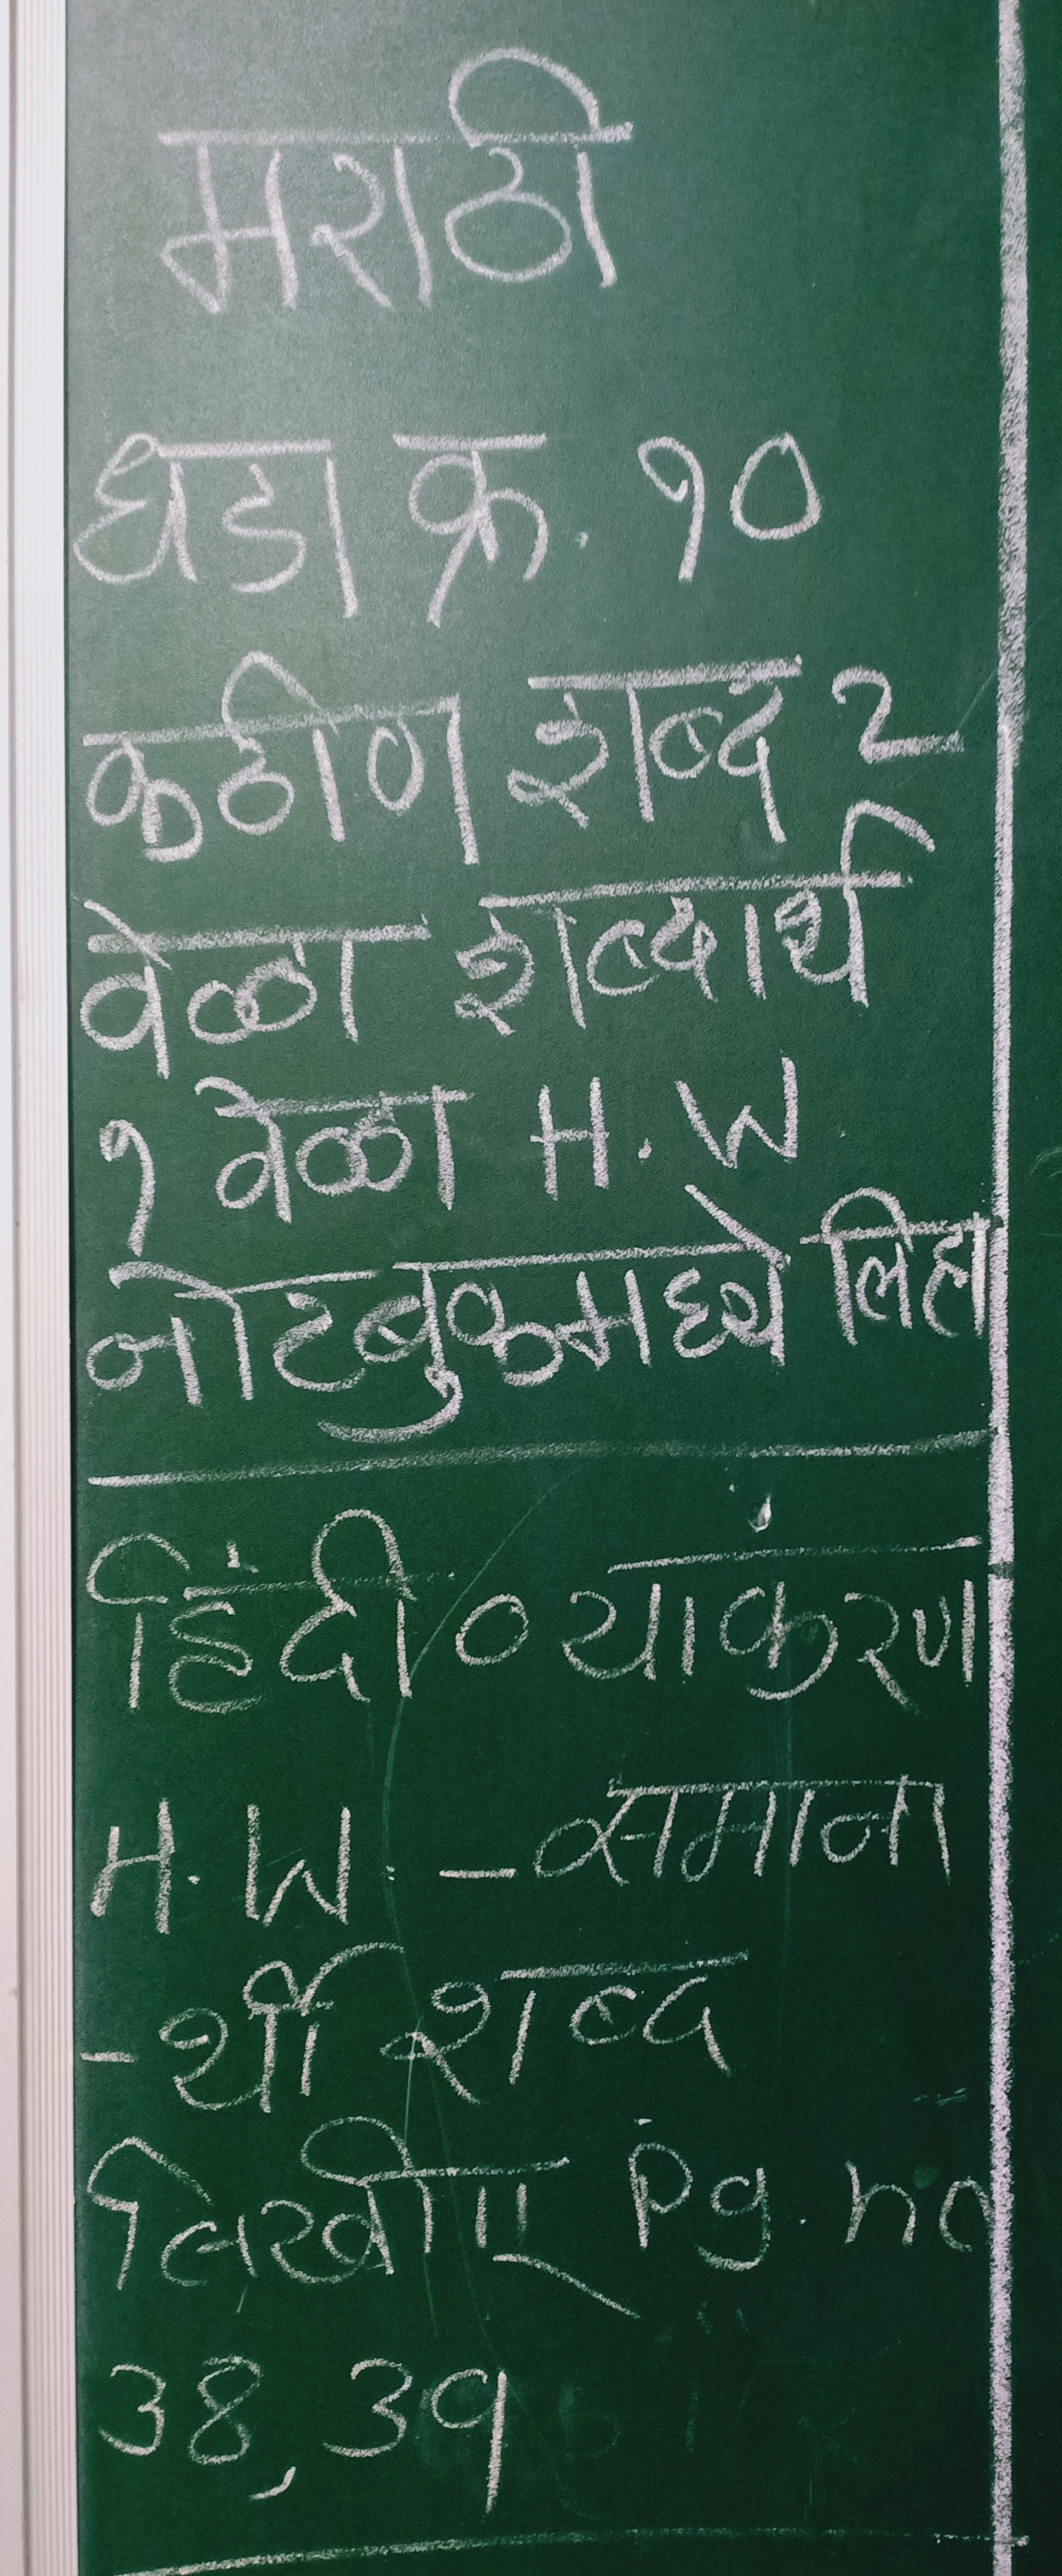 मराठी
धडा क्र. १०
कठीण शब्द 2
वेळा शब्दार्थ
१ वेळा H.W
नोटबुकमध्ये लिहा
हिंदी व्याकरण
H.W. - समाना
- र्थी शब्द
लिखीए Pg. no
38, 39